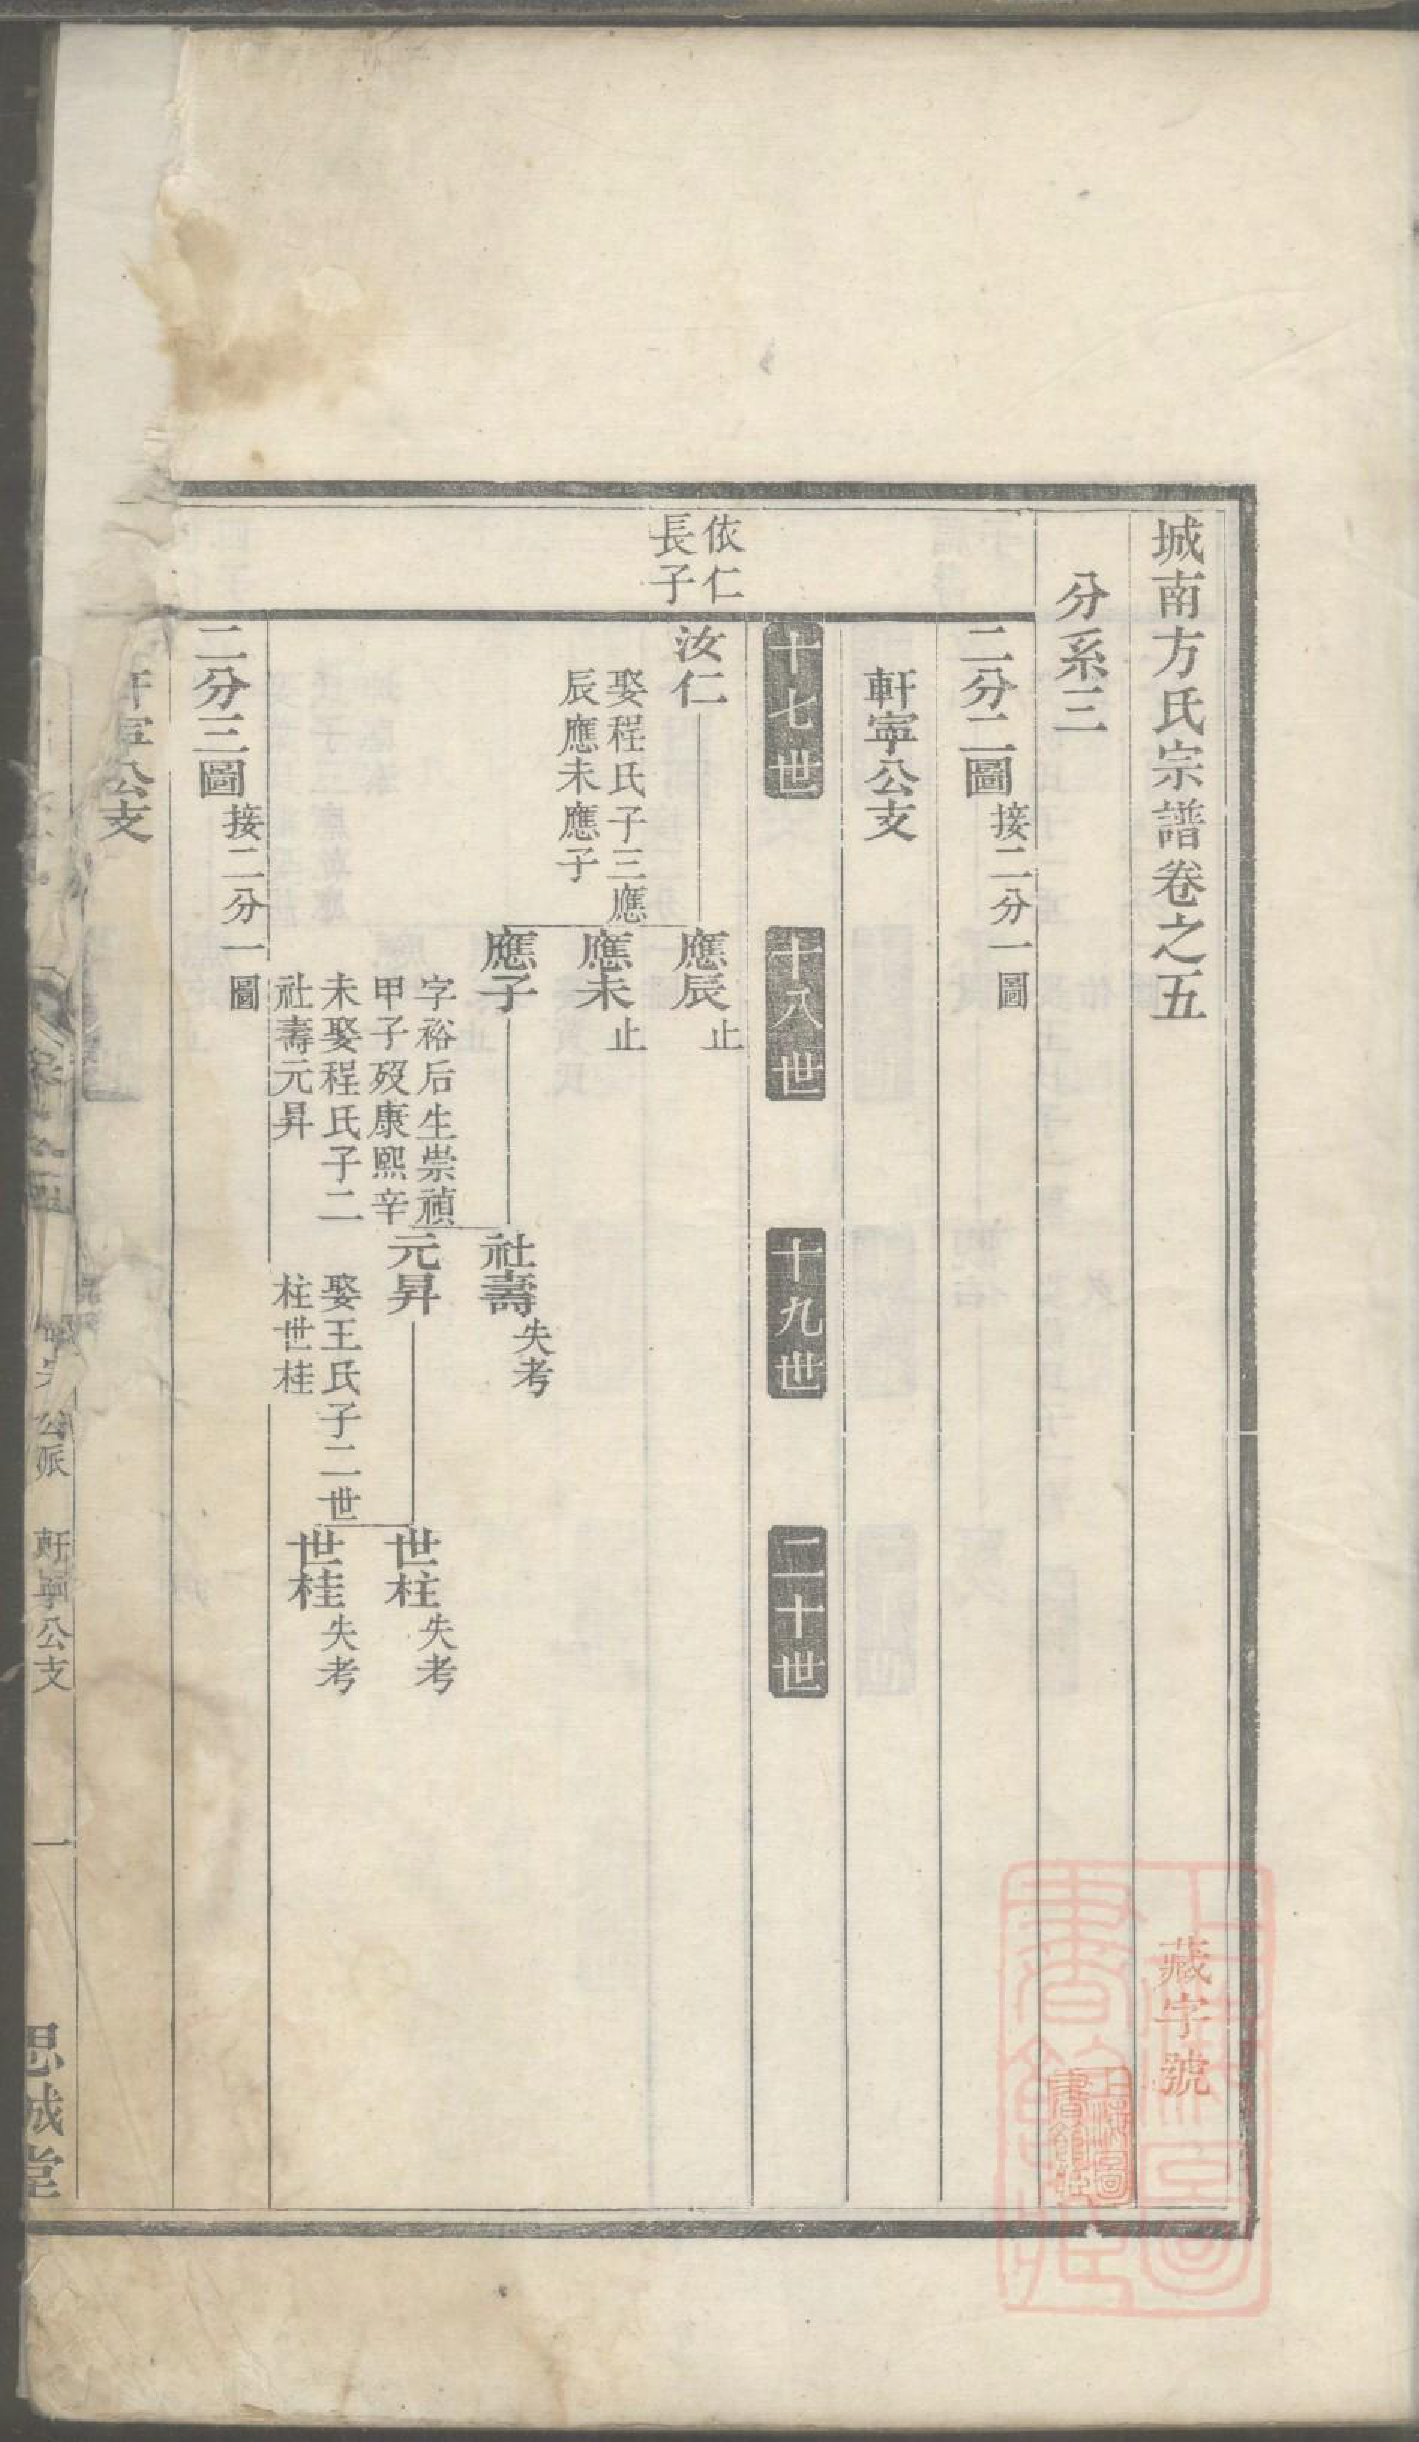 城南方氏宗譜卷之五
藏字號
上海圖書館藏
上海圖書館藏
分系三
二分二圖 接二分一圖
軒寧公支
十七世 十八世 十九世 二十世
依仁
長子
汝仁
娶程氏子三應
辰應未應子
應辰 止
應未 止
應子
字裕后生崇禎
甲子歿康熙辛
未娶程氏子二
社壽元昇
社壽 失考
元昇
娶王氏子二世
柱世桂
世柱 失考
世桂 失考
二分三圖 接二分一圖
公支
公派 軒寧公支
一
思誠堂